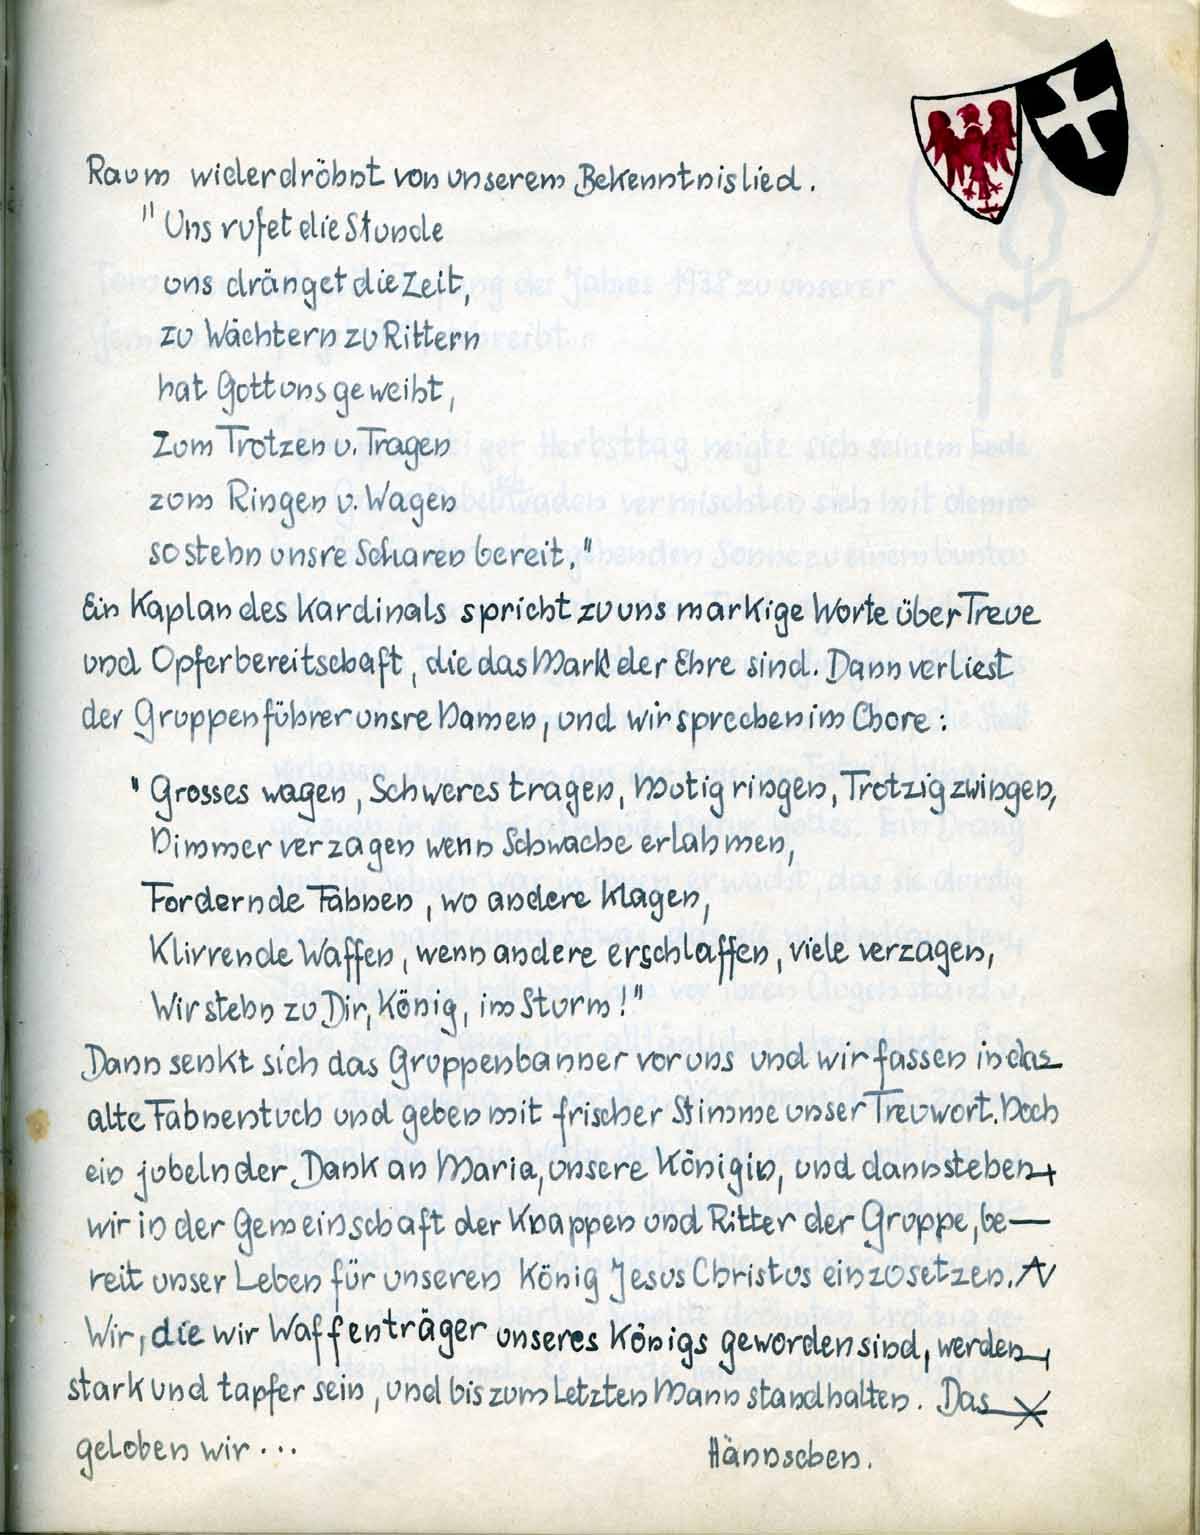 Raum widerdröhnt von unserem Bekenntnislied.
"Uns rufet die Stunde
uns dränget die Zeit,
zu Wächtern zu Rittern
hat Gott uns geweiht,
Zum Trotzen u. Tragen
zum Ringen u. Wagen
so stehn unsre Scharen bereit."
Ein Kaplan des Kardinals spricht zu uns markige Worte über Treue
und Opferbereitschaft, die das Mark der Ehre sind. Dann verliest
der Gruppenführer unsre Namen, und wir sprechen im Chore:
"Grosses wagen, Schweres tragen, Mutig ringen, Trotzig zwingen,
Nimmer verzagen wenn Schwache erlahmen,
Fordernde Fahnen, wo andere Klagen,
Klirrende Waffen, wenn andere erschlaffen, viele verzagen,
Wir stehn zu Dir, König, im Sturm!"
Dann senkt sich das Gruppenbanner vor uns und wir fassen in das
alte Fahnentuch und geben mit frischer Stimme unser Treuwort. Noch
ein jubelnder Dank an Maria, unsere Königin, und dann stehen
wir in der Gemeinschaft der Knappen und Ritter der Gruppe, be-
reit unser Leben für unseren König Jesus Christus einzusetzen.
Wir, die wir Waffenträger unseres Königs geworden sind, werden
stark und tapfer sein, und bis zum Letzten Mann standhalten. Das
geloben wir...
Hännschen.